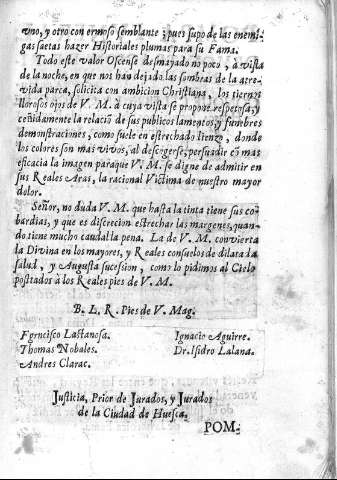 vno, y otro con ermoso semblante; pues supo de las enemi-
gas saetas hazer Historiales plumas para su Fama.
Todo este valor Oscense desmayado no poco, à vista
de la noche, en que nos han dejado las sombras de la atre-
vida parca, solicita con ambicion Christiana, los tiernos
llorosos ojos de V. M. à cuya vista se propone respetosa, y
ceñidamente la relaciō de sus publicos lamentos, y funebres
demonstraciones, como suele en estrechado lienzo, donde
los colores son mas vivos, al descogerse, persuadir cō mas
eficacia la imagen paraque V. M. se digne de admitir en
sus Reales Aras, la racional Victima de nuestro mayor
dolor.
Señor, no duda V. M. que hasta la tinta tiene sus co-
bardias, y que es discrecion estrechar las margenes, quan-
do tiene mucho caudal la pena. La de V. M. convierta
la Divina en los mayores, y Reales consuelos de dilatada
salud, y Augusta sucession, como lo pidimos al Cielo
postados à los Reales pies de V. M.
B. L. R. Pies de V. Mag.
Fgrncisco Lastanosa. Ignacio Aguirre.
Thomas Nobales. Dr. Isidro Lalana.
Andres Clarac.
Justicia, Prior de Jurados, y Jurados
de la Ciudad de Huesca.
POM.